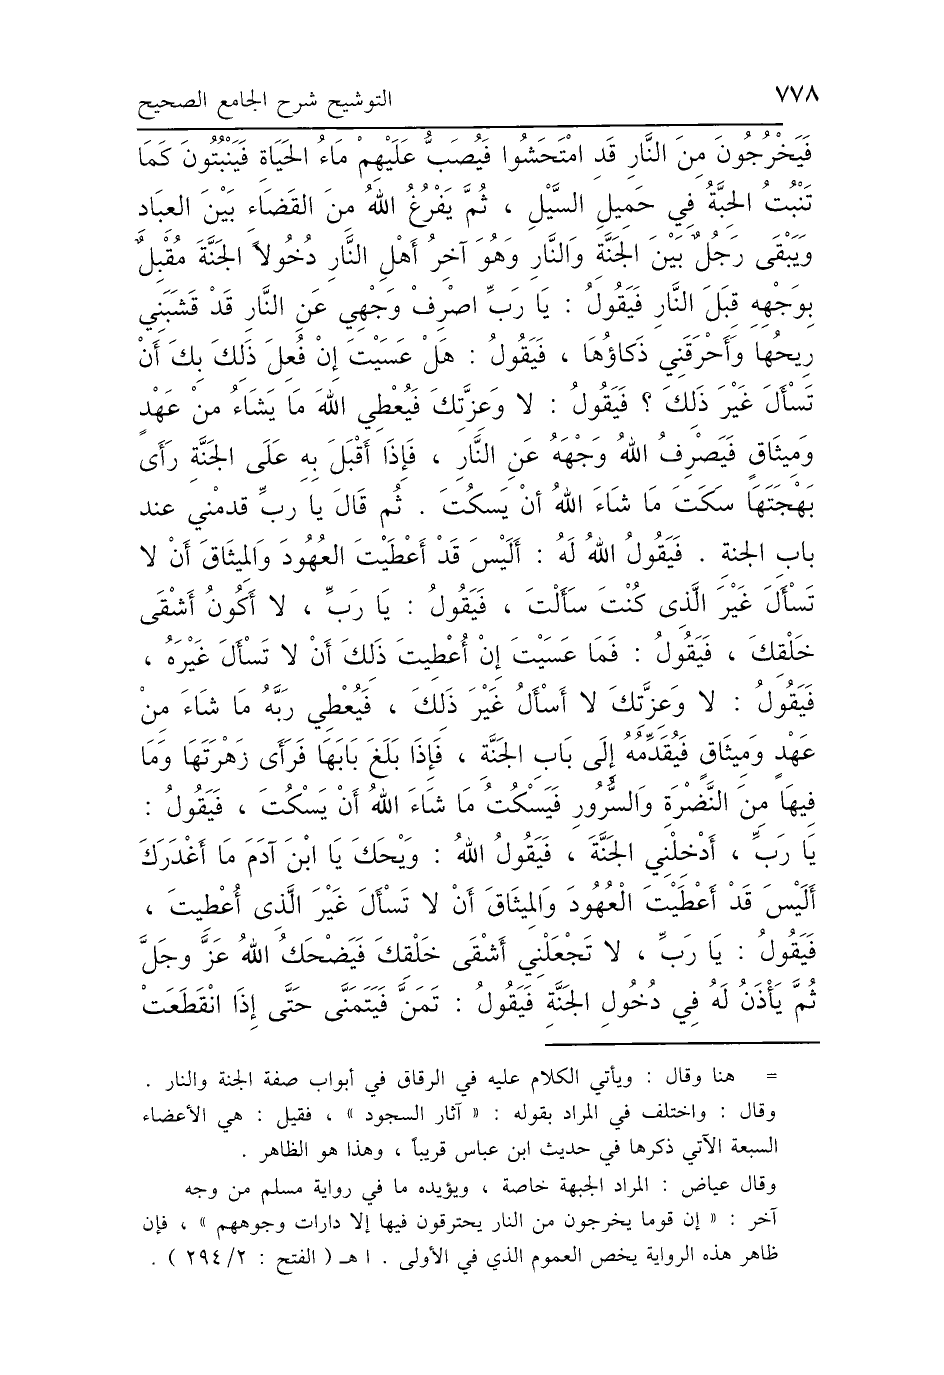 ٧٧٨
التوشيح شرح الجامع الصحيح
فَيَخْرُجُونَ مِنَ النَّارِ قَد امْتَحَشُوا فَيُصَبُّ عَلَيْهِمْ مَاءُ الحَيَاةِ فَيَنْبُتُونَ كَمَا
تَنْبُت الحِبَّةُ فِي حَمِيلِ السَّيْلِ ، ثُمَّ يَفْرُغُ اللهُ مِنَ القَضَاءِ بَيْنَ العِبَادِ
وَيَبْقَى رَجُلٌ بَيْنَ الجَنَّةِ وَالنَّارِ وَهُوَ آخِرُ أَهْلِ النَّارِ دُخُولاً الجَنَّةَ مُقْبِلٌ
بِوَجْهِهِ قِبَلَ النَّارِ فَيَقُولُ : يَا رَبِّ اصْرِفْ وَجْهِي عَنِ النَّارِ قَدْ قَشَبَنِي
رِيحُهَا وَأَحْرَقَنِي ذَكاؤُهَا ، فَيَقُولُ : هَلْ عَسَيْتَ إِنْ فُعِلَ ذَلِكَ بِكَ أَنْ
تَسْأَلَ غَيْرَ ذَلِكَ ؟ فَيَقُولُ : لا وَعِزَّتِكَ فَيُعْطِي اللهَ مَا يَشَاءُ مِنْ عَهْدٍ
وَمِيثَاقٍ فَيَصْرِفُ اللهُ وَجْهَهُ عَنِ النَّارِ ، فَإِذَا أَقْبَلَ بِهِ عَلَى الجَنَّةِ رَأَى
بَهْجَتَهَا سَكَتَ مَا شَاءَ اللهُ أَنْ يَسكُتَ . ثُم قَالَ يا ربِّ قدمْنِي عند
بابِ الجنة . فَيَقُولُ اللهُ لَهُ : أَلَيْسَ قَدْ أَعْطَيْتَ العُهُودَ وَالمِيثَاقَ أَنْ لا
تَسْأَلَ غَيْرَ الَّذِى كُنْتَ سَأَلْتَ ، فَيَقُولُ : يَا رَبِّ ، لا أَكُونُ أَشْقَى
خَلْقِكَ ، فَيَقُولُ : فَمَا عَسَيْتَ إِنْ أُعْطِيتَ ذَلِكَ أَنْ لا تَسْأَلَ غَيْرَهُ ،
فَيَقُولُ : لا وَعِزَّتِكَ لا أَسْأَلُ غَيْرَ ذَلِكَ ، فَيُعْطِي رَبَّهُ مَا شَاءَ مِنْ
عَهْدٍ وَمِيثَاقٍ فَيُقَدِّمُهُ إِلَى بَابِ الجَنَّةِ ، فَإِذَا بَلَغَ بَابَهَا فَرَأَى زَهْرَتَهَا وَمَا
فِيهَا مِنَ النَّضْرَةِ وَالسُّرُورِ فَيَسْكُتُ مَا شَاءَ اللهُ أَنْ يَسْكُتَ ، فَيَقُولُ :
يَا رَبِّ ، أَدْخِلْنِي الجَنَّةَ ، فَيَقُولُ اللهُ : وَيْحَكَ يَا ابْنَ آدَمَ مَا أَغْدَرَكَ
أَلَيْسَ قَدْ أَعْطَيْتَ الْعُهُودَ وَالمِيثَاقَ أَنْ لا تَسْأَلَ غَيْرَ الَّذِى أُعْطِيتَ ،
فَيَقُولُ : يَا رَبِّ ، لا تَجْعَلْنِي أَشْقَى خَلْقِكَ فَيَضْحَكُ اللهُ عَزَّ وجَلَّ
ثُمَّ يَأْذَنُ لَهُ فِي دُخُولِ الجَنَّةِ فَيَقُولُ : تَمَنَّ فَيَتَمَنَّى حَتَّى إِذَا انْقَطَعَتْ
= هنا وقال : ويأتي الكلام عليه في الرقاق في أبواب صفة الجنة والنار .
وقال : واختلف في المراد بقوله : « آثار السجود » ، فقيل : هي الأعضاء
السبعة الآتي ذكرها في حديث ابن عباس قريباً ، وهذا هو الظاهر .
وقال عياض : المراد الجبهة خاصة ، ويؤيده ما في رواية مسلم من وجه
آخر : « إن قوما يخرجون من النار يحترقون فيها إلا دارات وجوههم » ، فإن
ظاهر هذه الرواية يخص العموم الذي في الأولى . ا هـ ( الفتح : ٢٩٤/٢ ) .